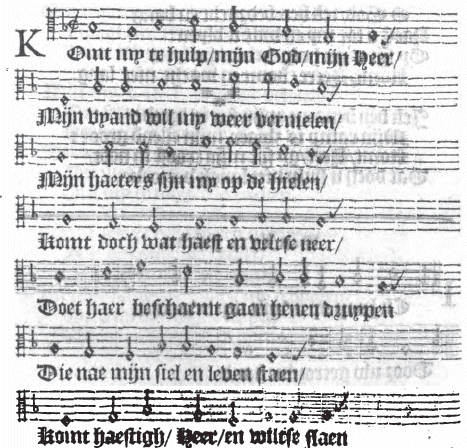 KOmt my te hulp/mijn God/mijn Heer/
Mijn vyand wil my weer vernielen/
Mijn haeters sijn my op de hielen/
Komt doch wat haest en veltse neer/
Doet haer beschaemt gaen henen druypen
Die nae mijn siel en leven staen/
Komt haestigh/ Heer/en wiltse slaen